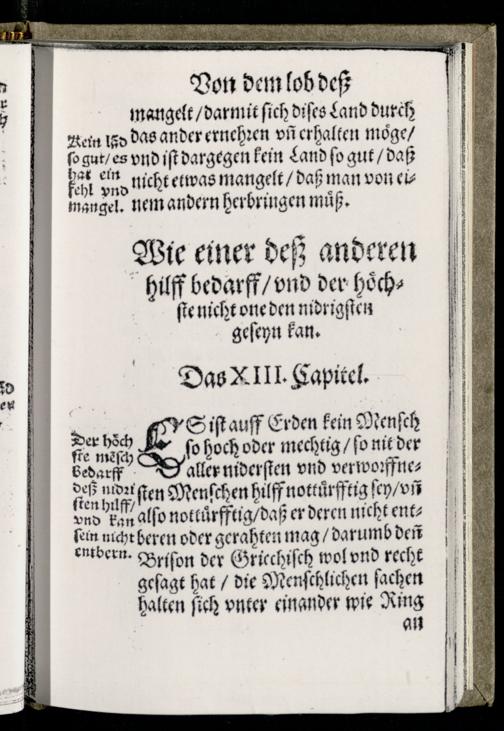 Von dem lob deß
mangelt / darmit sich dises Land durch
das ander ernehren vñ erhalten möge /
vnd ist dargegen kein Land so gut / daß
nicht etwas mangelt / daß man von ei-
nem andern herbringen müß.
Kein lãd
so gut / es
hat ein
fehl vnd
mangel.
Wie einer deß anderen
hilff bedarff / vnd der höch-
ste nicht one den nidrigsten
geseyn kan.
Das XIII. Capitel.
ES ist auff Erden kein Mensch
so hoch oder mechtig / so nit der
aller nidersten vnd verworffne-
sten Menschen hilff nottürfftig sey / vñ
also nottürfftig / daß er deren nicht ent-
beren oder gerahten mag / darumb deñ
Brison der Griechisch wol vnd recht
gesagt hat / die Menschlichen sachen
halten sich vnter einander wie Ring
an
Der höch
ste mẽsch
bedarff
deß nidri
sten hilff /
vnd kan
sein nicht
entbern.